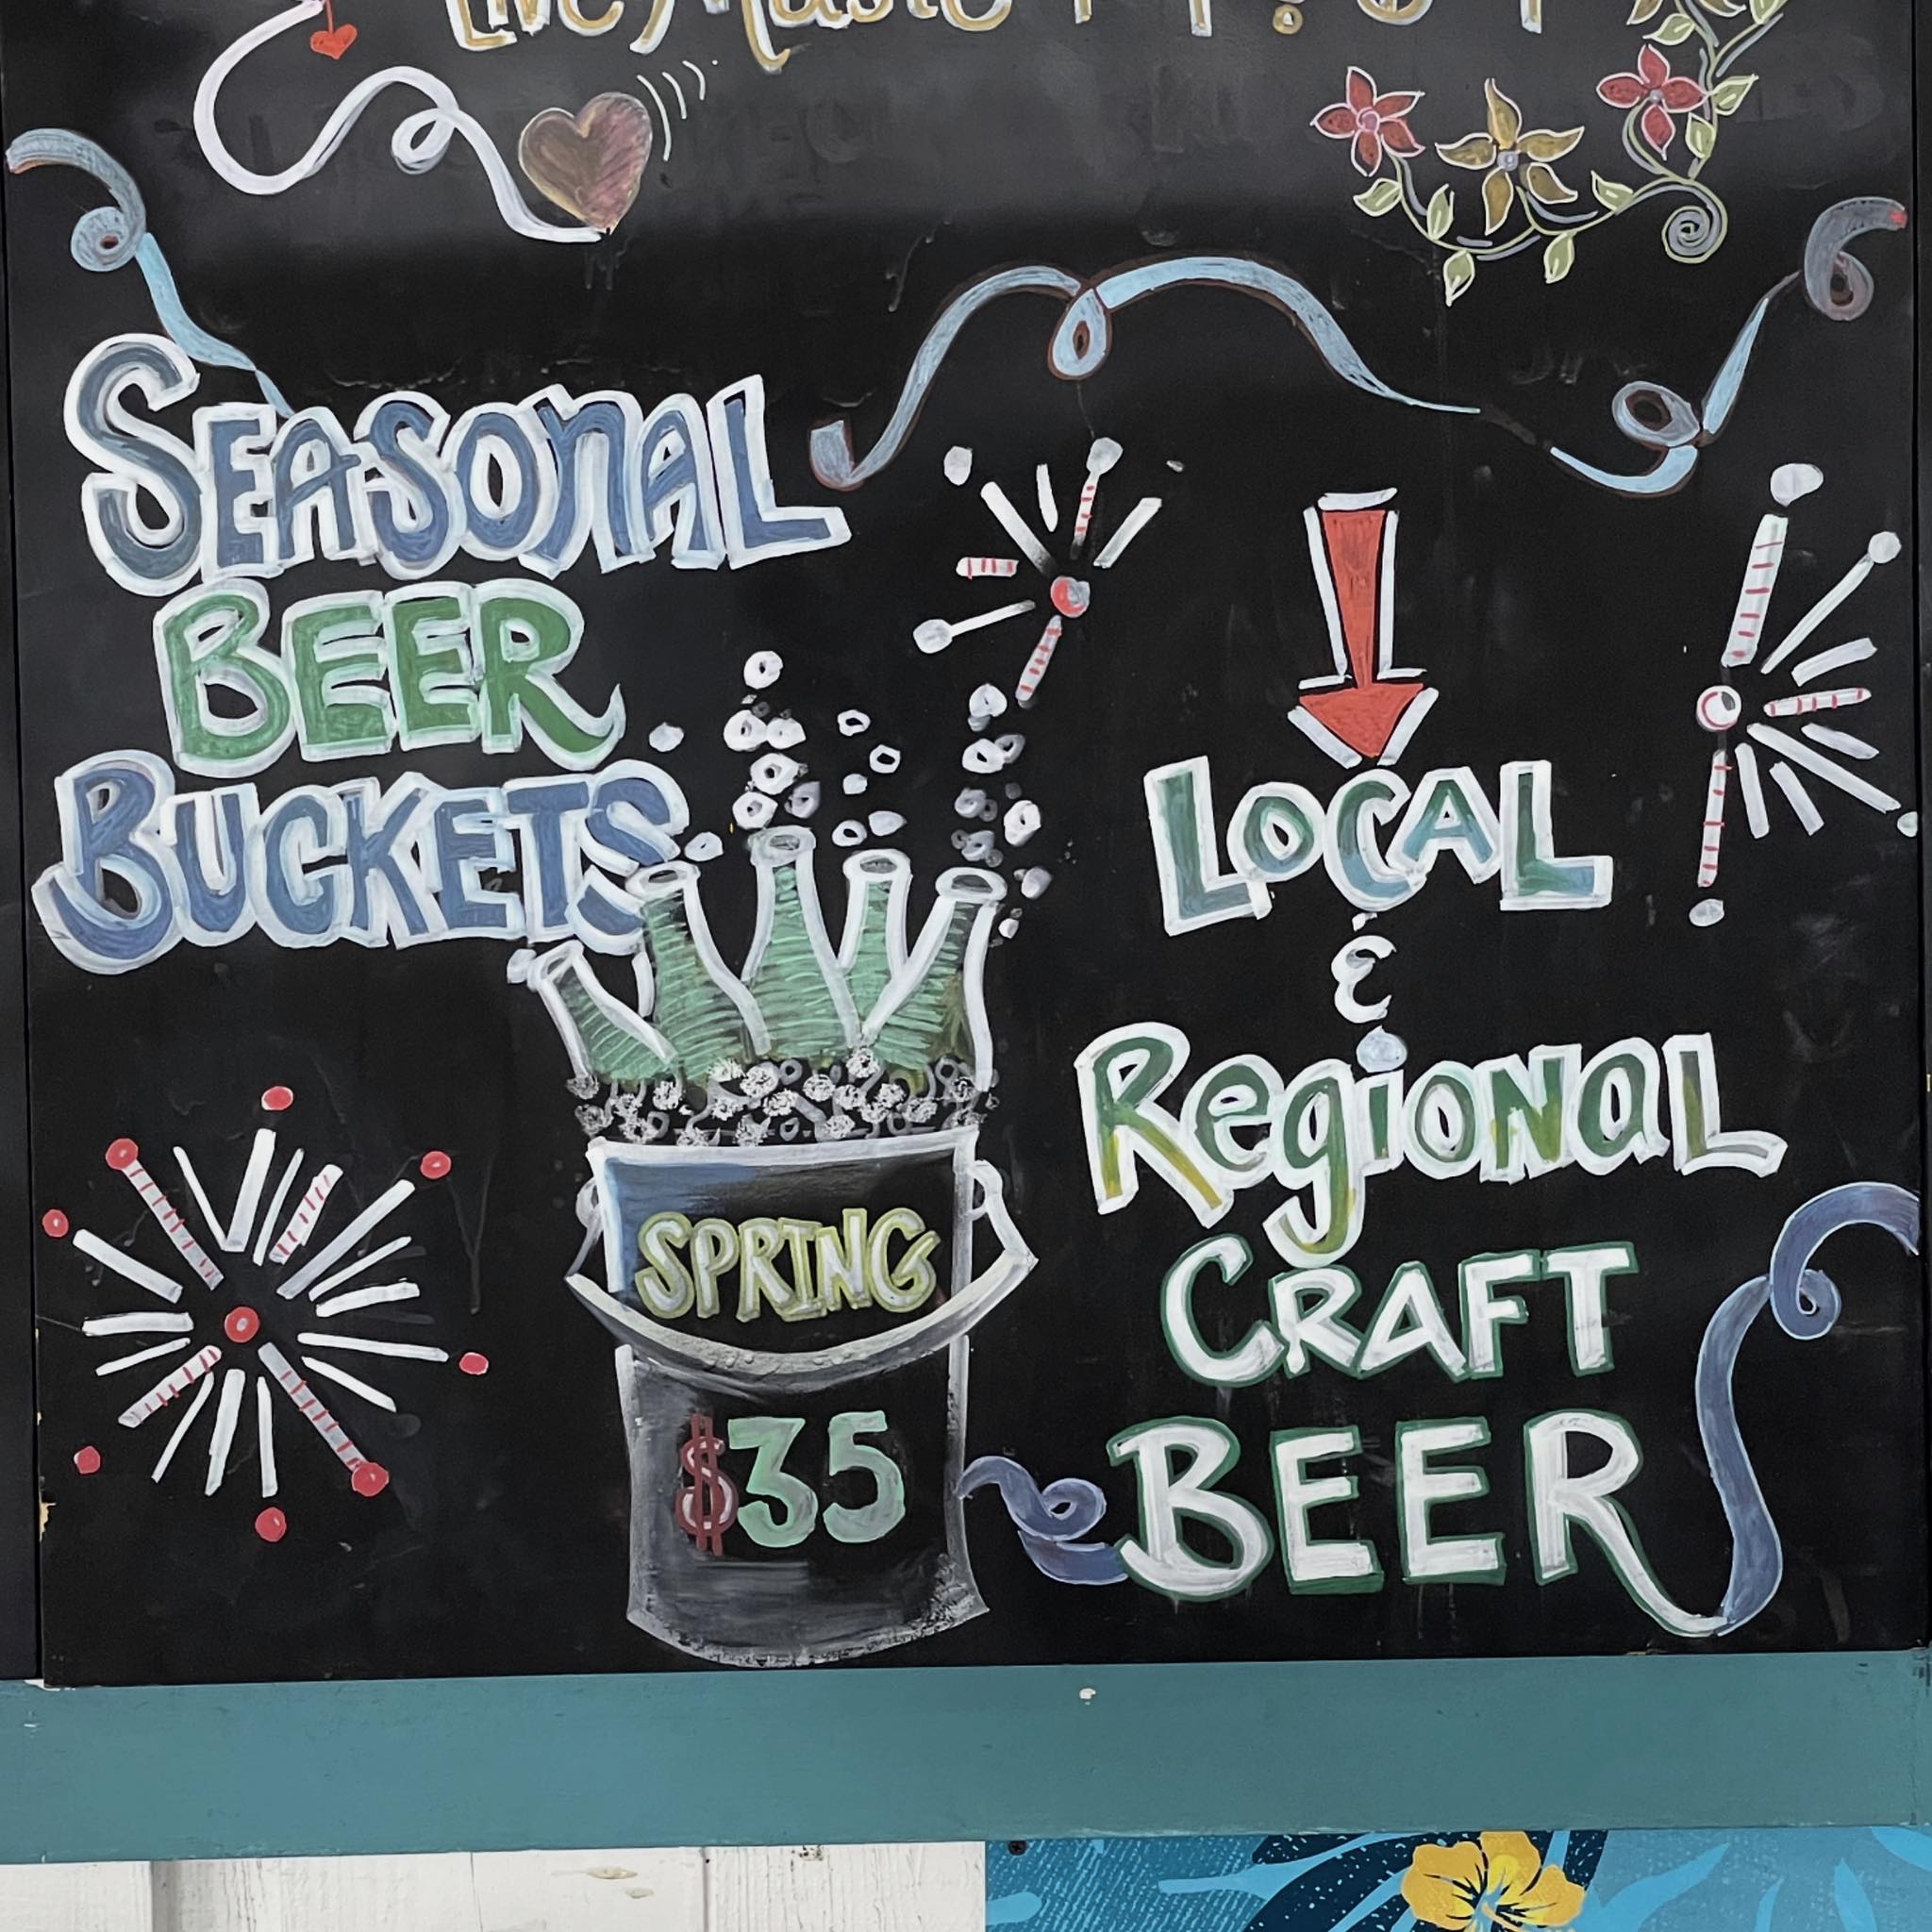 Live Music
SEASONAL
BEER
BUCKETS
SPRING
$35
LOCAL
&
Regional
CRAFT
BEER